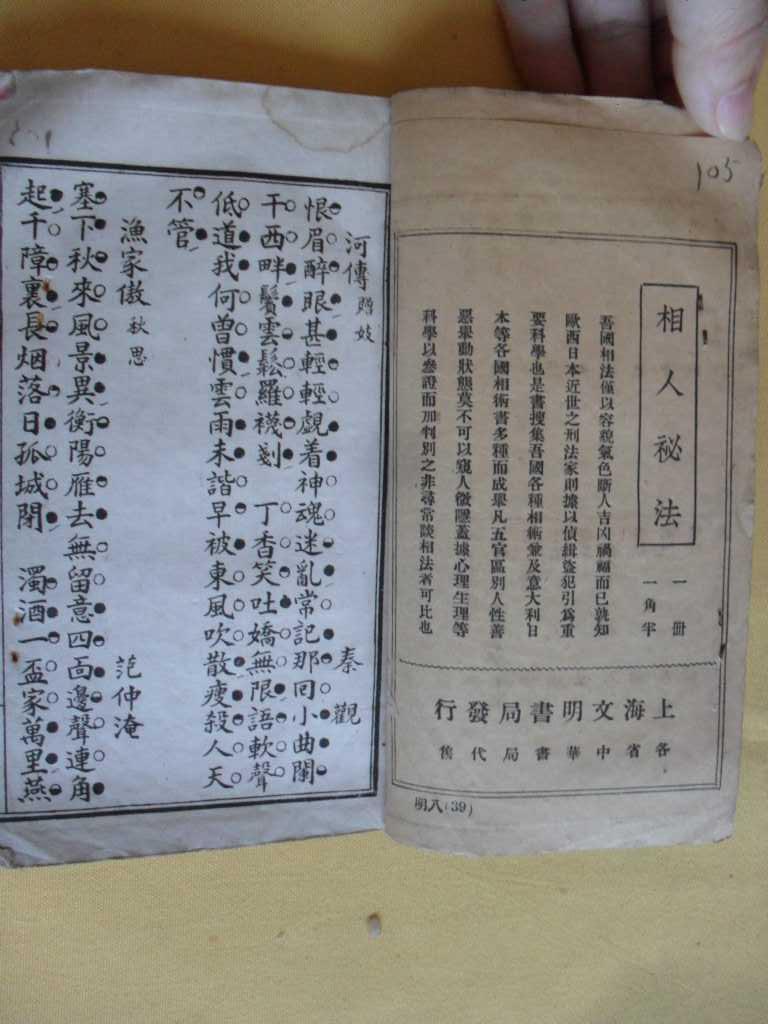 105
相人祕法
一冊
一角半
吾國相法僅以容貌氣色斷人吉凶禍福而已孰知
歐西日本近世之刑法家則據以偵緝盜犯引爲重
要科學也是書搜集吾國各種相術兼及意大利日
本等各國相術書多種而成舉凡五官區別人性善
惡舉動狀態莫不可以窺人微隱蓋據心理生理等
科學以叅證而加判別之非尋常談相法者可比也
上海文明書局發行
各省中華書局代售
明八(39)
河傳 贈妓 秦觀
恨眉醉眼甚輕輕覷着神魂迷亂常記那回小曲闌
干西畔鬢雲鬆羅襪剗 丁香笑吐嬌無限語軟聲
低道我何曾慣雲雨未諧早被東風吹散瘦殺人天
不管
漁家傲 秋思 范仲淹
塞下秋來風景異衡陽雁去無留意四面邊聲連角
起千障裏長烟落日孤城閉 濁酒一盃家萬里燕